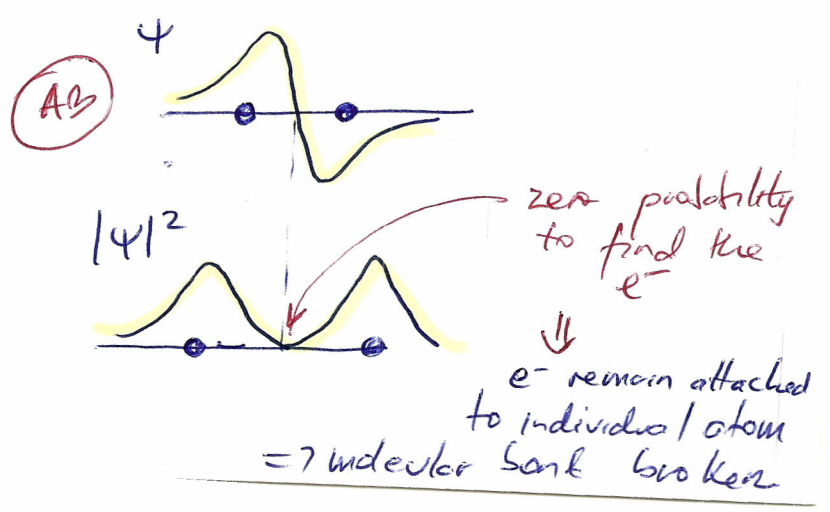 ψ
AB
|ψ|²
zero probability
to find the
e⁻
⇓
e⁻ remain attached
to individual atom
=> molecular bond broken